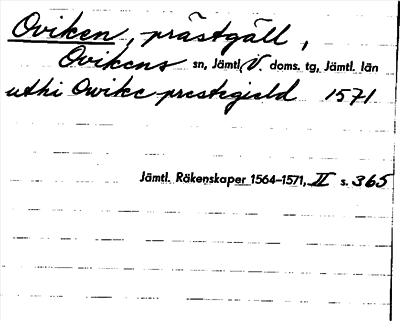 Oviken, prästgäll,
Ovikens sn, Jämtl. V. doms. tg, Jämtl. län
uthi Owike prestegield 1571
Jämtl. Räkenskaper 1564-1571, II s. 365